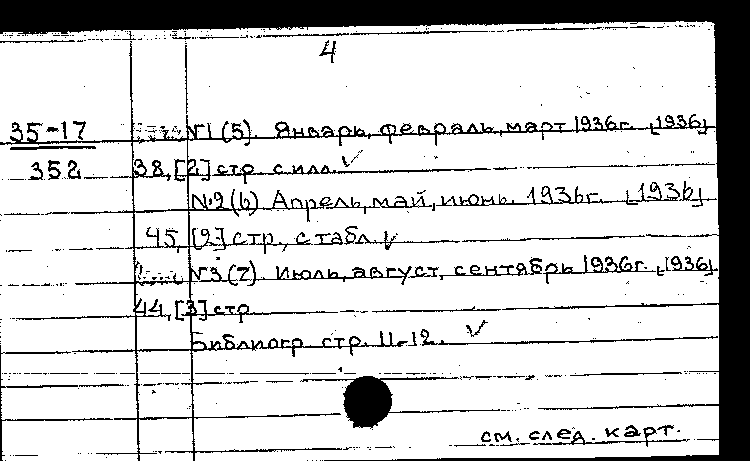 4
35-17 №1 (5). Январь, февраль, март 1936г. [1936]
352 38,[2] стр. с илл. ✓
№2(6) Апрель, май, июнь. 1936г. [1936]
45, [2] стр., с табл. ✓
№3(7). Июль, август, сентябрь 1936г. [1936]
44,[3] стр
Библиогр стр. 11-12. ✓
см. след. карт.